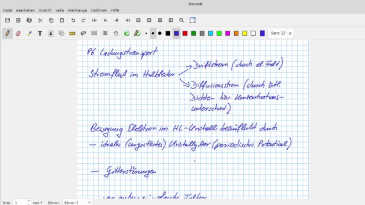 Xournal
Datei Bearbeiten Ansicht Seite Werkzeuge Optionen Hilfe
Sans 12
P6 Ladungstransport
Stromfluß im Halbleiter
Driftstrom (durch el. Feld)
Diffusionsstrom (durch
Dichten- bzw. Konzentrations-
unterschied)
Bewegung Elektron im HL-Kristall beeinflußt durch
– ideales (ungestörtes) Kristallgitter (periodisches Potential)
– Gitterstörungen
Seite 1
Ebene: Ebene 1